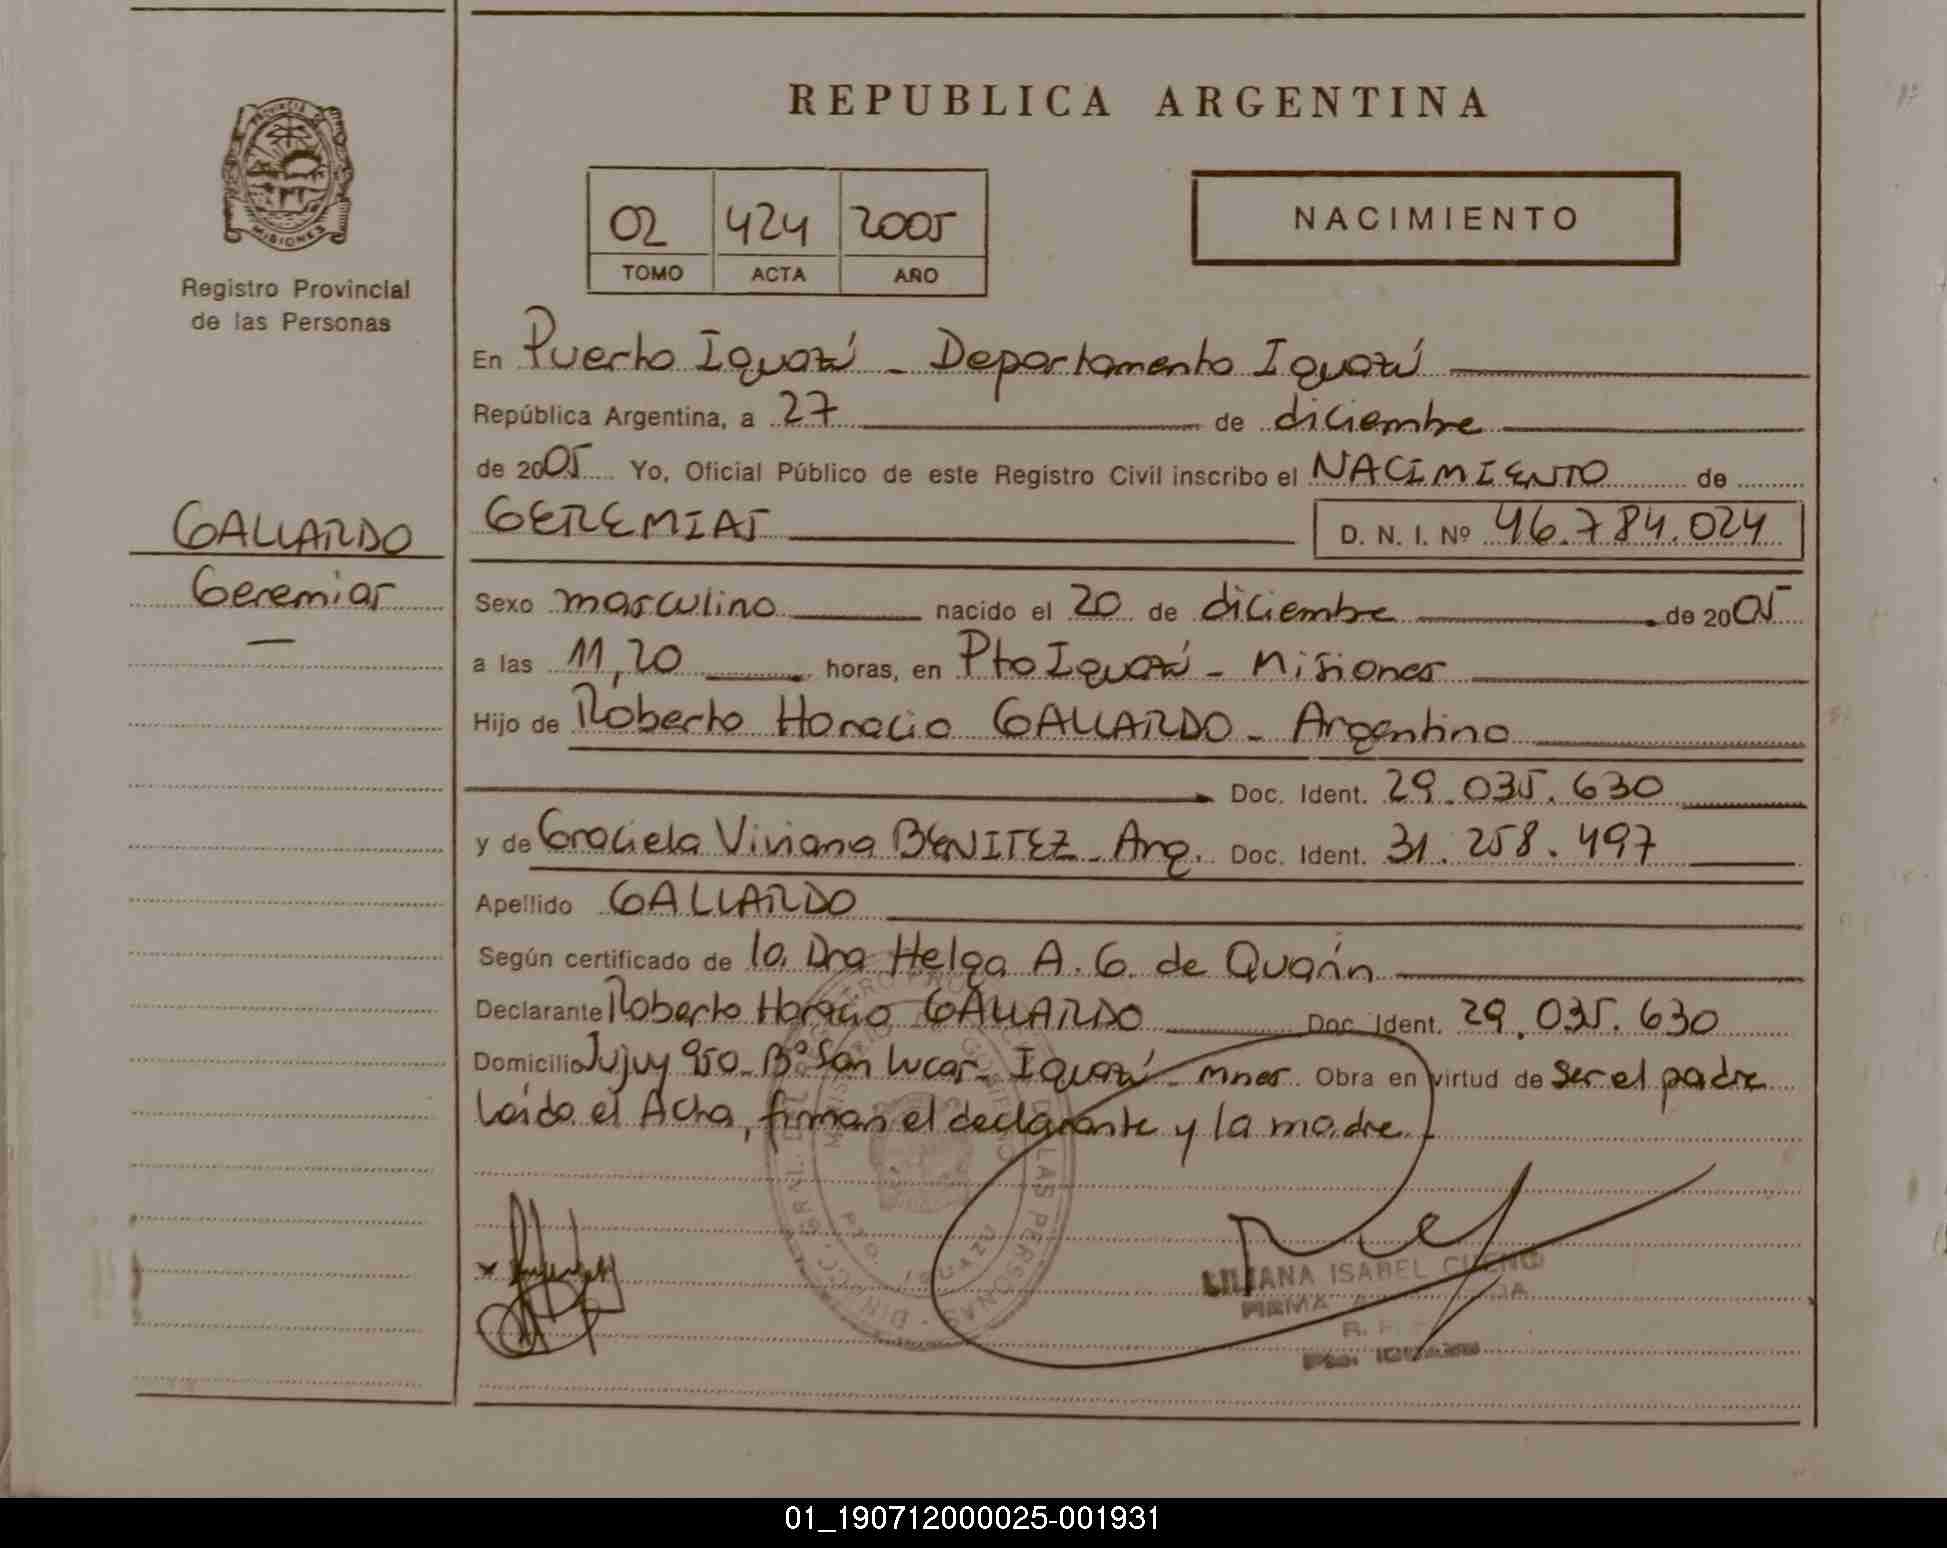 REPUBLICA ARGENTINA
PROVINCIA DE
MISIONES
Registro Provincial
de las Personas
02 424 2005
TOMO ACTA AÑO
NACIMIENTO
En Puerto Iguazú - Departamento Iguazú
República Argentina, a 27 de diciembre
de 2005 Yo, Oficial Público de este Registro Civil inscribo el NACIMIENTO de
GALLARDO
Geremias
GEREMIAS D. N. I. Nº 46.784.024
Sexo masculino nacido el 20 de diciembre de 2005
a las 11,20 horas, en Pto Iguazú - Misiones
Hijo de Roberto Horacio GALLARDO - Argentino
Doc. Ident. 29.035.630
y de Graciela Viviana BENITEZ - Arg. Doc. Ident. 31.258.497
Apellido GALLARDO
Según certificado de la Dra Helga A. G. de Quarín
Declarante Roberto Horacio GALLARDO Doc. Ident. 29.035.630
Domicilio Jujuy 950 - Bº San Lucas - Iguazú - Mnes Obra en virtud de ser el padre
Leída el Acta, firman el declarante y la madre.
LAS PERSONAS
PTO. IGUAZU
LILIANA ISABEL
FIRMA
Pto. IGUAZU
01_190712000025-001931